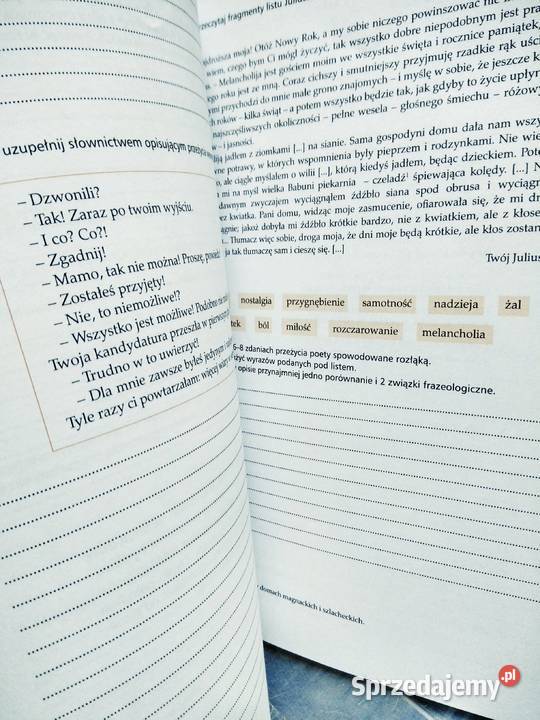 uzupełnij słownictwem opisującym przeżycia
– Dzwonili?
– Tak! Zaraz po twoim wyjściu.
– I co? Co?!
– Zgadnij!
– Mamo, tak nie można! Proszę, powiedz
– Zostałeś przyjęty!
– Nie, to niemożliwe!?
– Wszystko jest możliwe! Podobno
Twoja kandydatura przeszła w pierwszym
– Trudno w to uwierzyć!
– Dla mnie zawsze byłeś jedynym
Tyle razy ci powtarzałam: więcej wiary
przeczytaj fragmenty listu
droższa moja! Otóż Nowy Rok, a my sobie niczego powinszować nie
wiem, czego bym Ci mógł życzyć, tak wszystko dobre niepodobnym jest
– Melancholija jest gościem moim we wszystkie święta i rocznice pamiątek,
roku jest ze mną. Coraz cichszy i smutniejszy przyjmuję rzadkie rąk
przychodzi do mnie małe grono znajomych – i myślę w sobie, że jeszcze
roków – kilka świat – a potem wszystko będzie tak, jak gdyby to życie
najszczęśliwszych okoliczności – pełne wesela – głośnego śmiechu –
i jasności.
jadłem z ziomkami [...] na sianie. Sama gospodyni domu dała nam
potrawy, w których wspomnienia były pieprzem i rodzynkami. Nie
ale ciągle myślałem o wilii [...], którą kiedyś jadłem, będąc dzieckiem.
mi na myśl wielka Babuni piekarnia – czeladź¹ śpiewająca kolędy. [...]
dawnym zwyczajem wyciągnąłem źdźbło siana spod obrusa i
bez kwiatka. Pani domu, widząc moje zasmucenie, ofiarowała się, że mi
jakoż dobyła mi źdźbło krótkie bardzo, nie z kwiatkiem, ale z
Tłumacz więc sobie, droga moja, że dni moje będą krótkie, ale kłos
ja tak tłumaczę sam i cieszę się. [...]
Twój Juliusz
nostalgia przygnębienie samotność nadzieja żal
ból miłość rozczarowanie melancholia
6–8 zdaniach przeżycia poety spowodowane rozłąką.
wyrazów podanych pod listem.
opisie przynajmniej jedno porównanie i 2 związki frazeologiczne.
domach magnackich i szlacheckich.
Sprzedajemy.pl